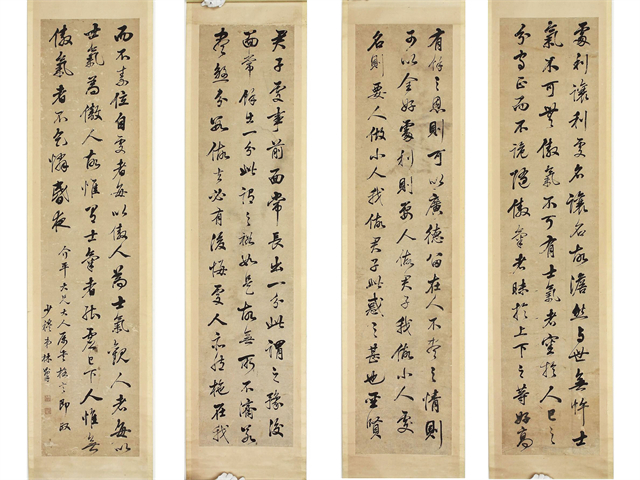 君子處事前面常長出一分此謂之豫後
面常餘出一分此謂之裕如是故無所不濟若
盡煞分數做去必有後悔處人亦然施在我
有餘之恩則可以廣德留在人不盡之情則
可以全好處利則要人做君子我做小人處
名則要人做小人我做君子此惑之甚也聖賢
處利讓利處名讓名故澹然與世無忤士
氣不可無傲氣不可有士氣者審於人己之
分守正而不詭隨傲氣者昧於上下之等好高
而不素位自處者每以傲人為士氣觀人者每以
士氣為傲人故惟有士氣者能虛己下人惟無
傲氣者不乞憐昏夜
介年大兄大人屬書格言即政
少穆弟林則徐